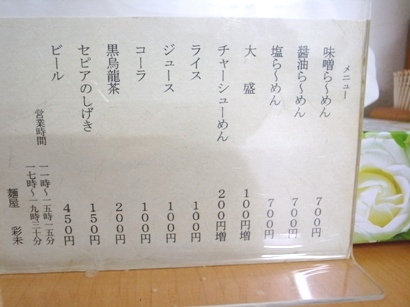 メニュー
味噌ら〜めん 700円
醤油ら〜めん 700円
塩ら〜めん 700円
大盛 100円増
チャーシューめん 200円増
ライス 100円
ジュース 100円
コーラ 100円
黒烏龍茶 200円
セピアのしげき 150円
ビール 450円
営業時間
一一時〜一五時一五分
一七時〜一九時三十分
麺屋 彩未